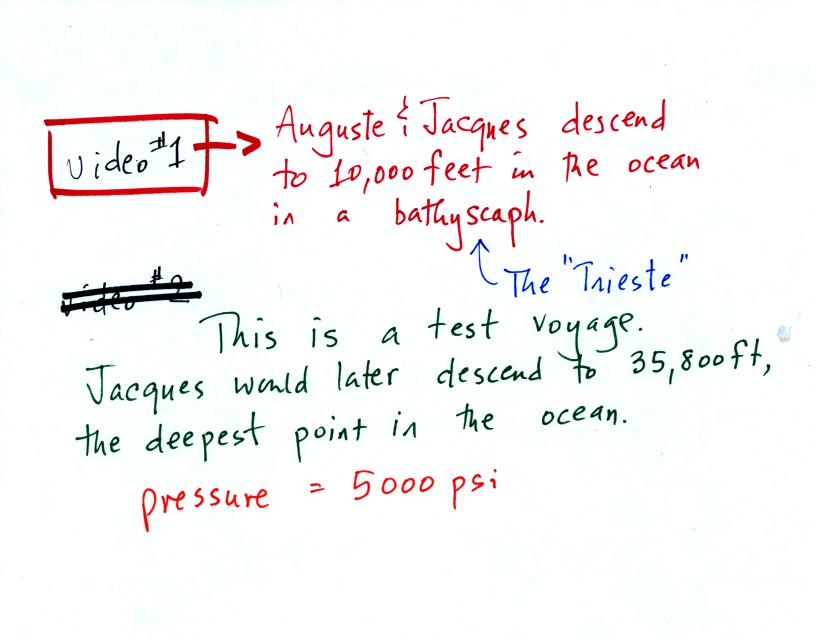 video #1
Auguste & Jacques descend
to 10,000 feet in the ocean
in a bathyscaph.
The "Trieste"
video #2
This is a test voyage.
Jacques would later descend to 35,800ft,
the deepest point in the ocean.
pressure = 5000 psi